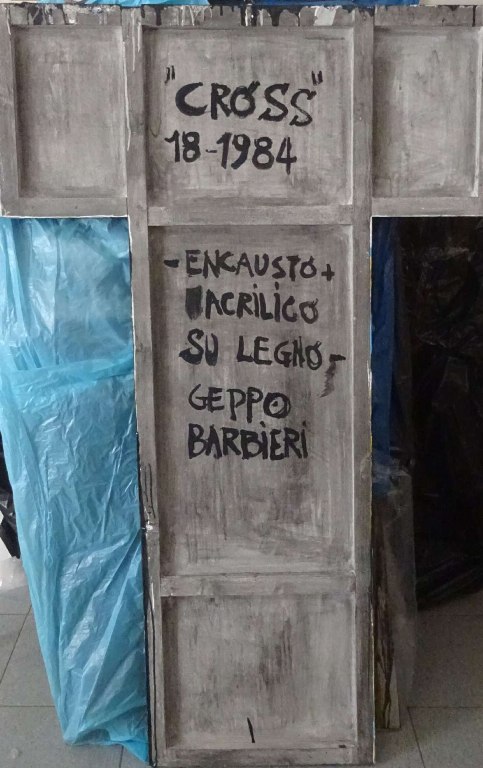 "CROSS"
18-1984
- ENCAUSTO +
ACRILICO
SU LEGNO -
GEPPO
BARBIERI